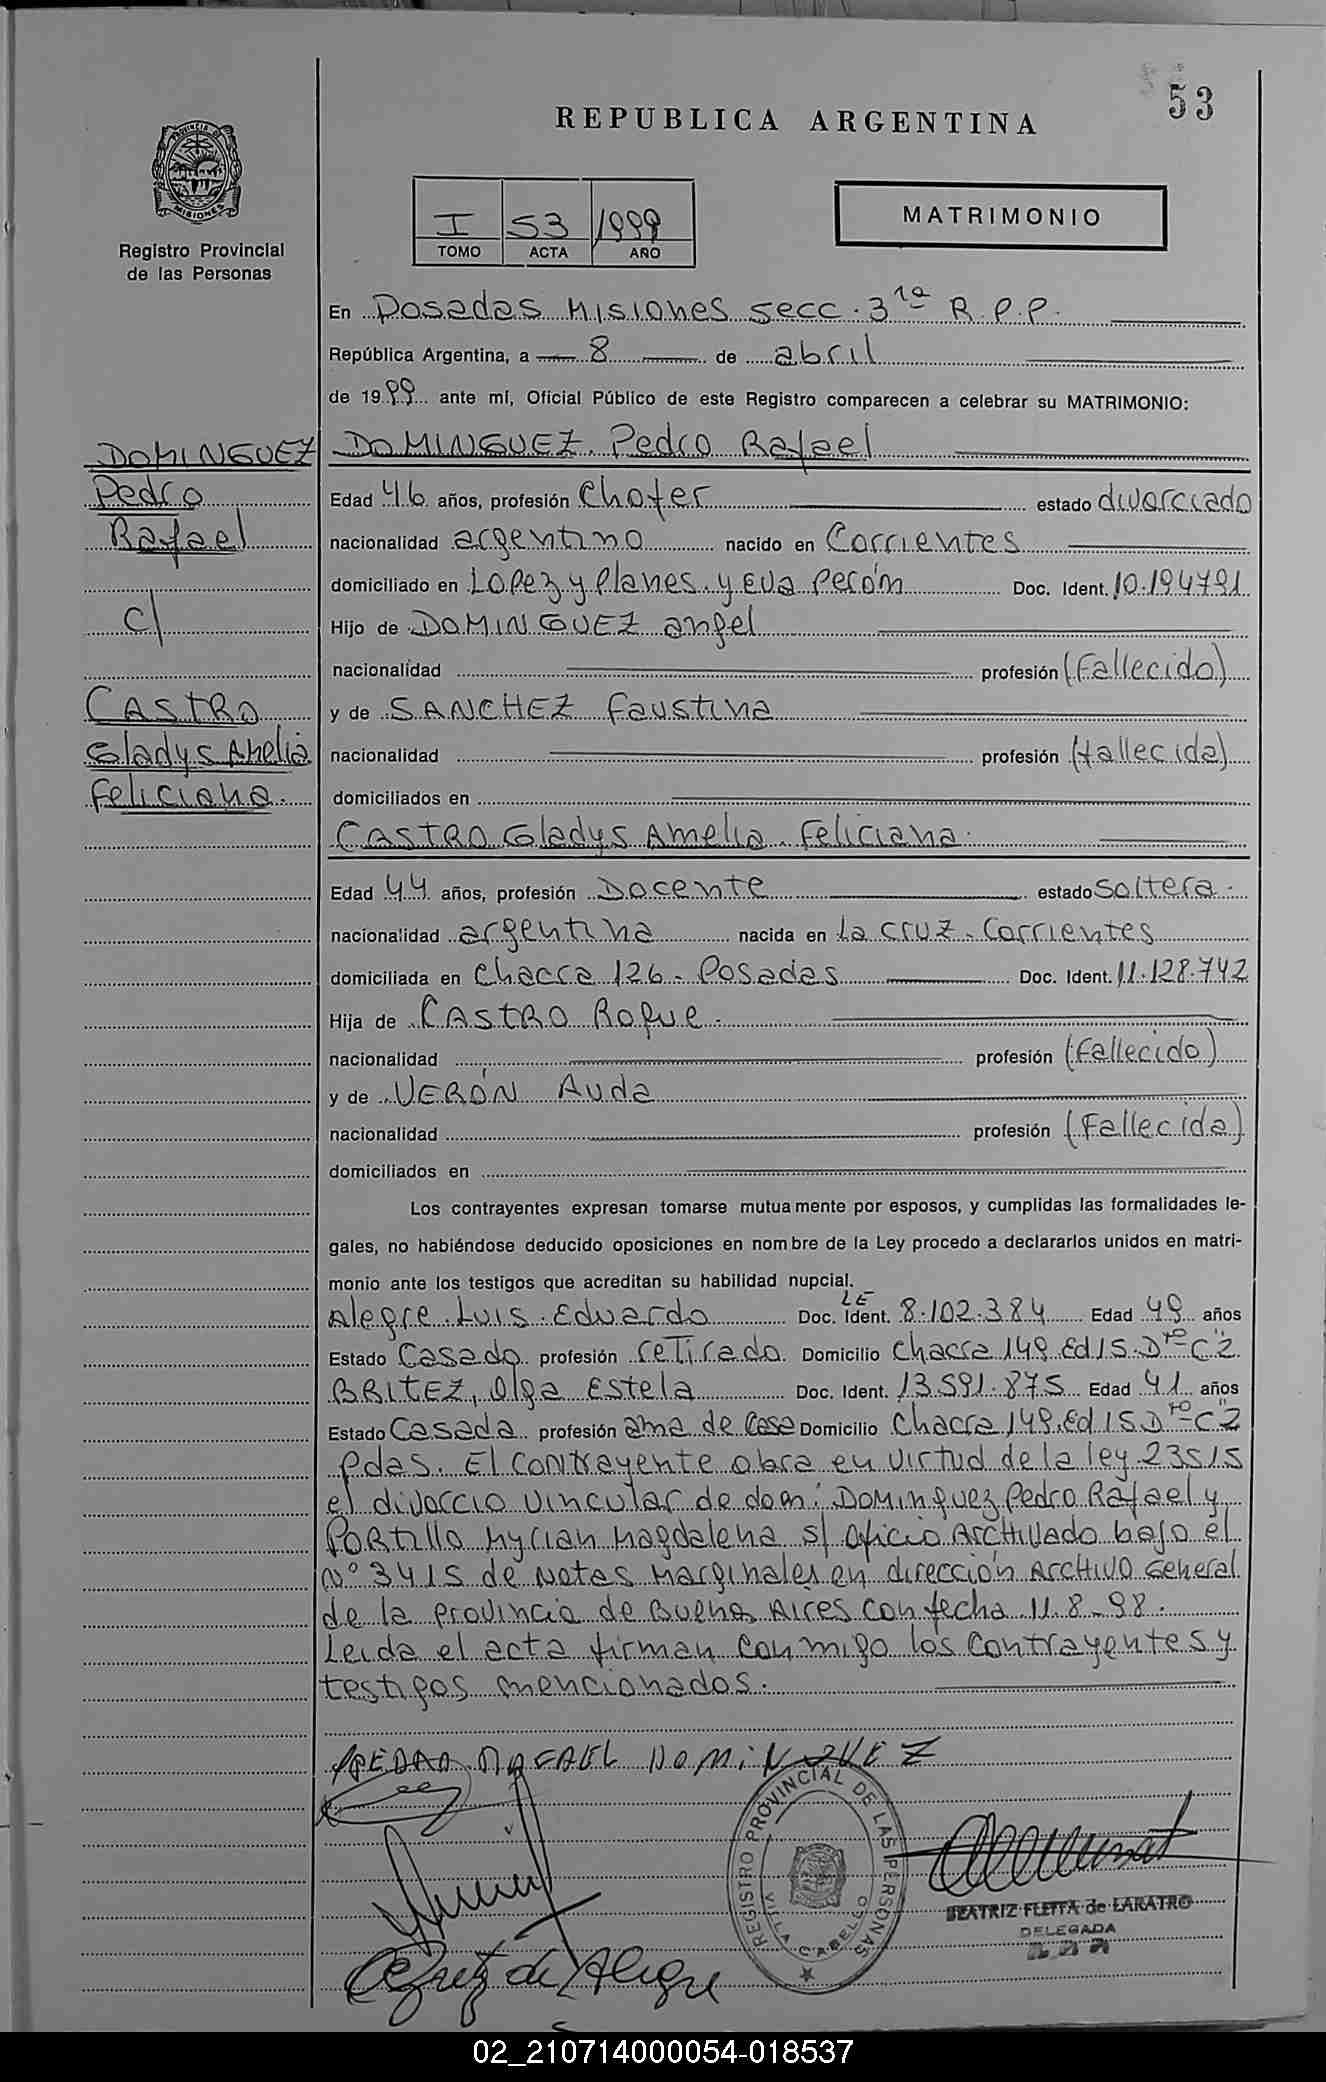 53
REPUBLICA ARGENTINA
PROVINCIA DE
MISIONES
Registro Provincial
de las Personas
I 53 1999
TOMO ACTA AÑO
MATRIMONIO
En Posadas Misiones secc. 3ra R.P.P.
República Argentina, a 8 de abril
de 1999 ante mí, Oficial Público de este Registro comparecen a celebrar su MATRIMONIO:
DOMINGUEZ
Pedro
Rafael
c/
CASTRO
Gladys Amelia
Feliciana.
DOMINGUEZ, Pedro Rafael
Edad 46 años, profesión Chofer estado divorciado
nacionalidad argentino nacido en Corrientes
domiciliado en Lopez y Planes y Eva Perón Doc. Ident. 10.194791
Hijo de DOMINGUEZ angel
nacionalidad profesión (Fallecido)
y de SANCHEZ Faustina
nacionalidad profesión (fallecida)
domiciliados en
CASTRO Gladys Amelia Feliciana.
Edad 44 años, profesión Docente estado Soltera.
nacionalidad argentina nacida en La Cruz - Corrientes
domiciliada en Chacra 126 - Posadas Doc. Ident. 11.128.742
Hija de CASTRO Roque.
nacionalidad profesión (Fallecido)
y de VERÓN Auda
nacionalidad profesión (Fallecida)
domiciliados en
Los contrayentes expresan tomarse mutuamente por esposos, y cumplidas las formalidades le-
gales, no habiéndose deducido oposiciones en nombre de la Ley procedo a declararlos unidos en matri-
monio ante los testigos que acreditan su habilidad nupcial.
Alegre Luis Eduardo Doc. Ident. LE 8.102.384 Edad 49 años
Estado Casado profesión retirado Domicilio Chacra 149 Ed 15 Dto "C"2
BRITEZ, Olga Estela Doc. Ident. 13.591.875 Edad 41 años
Estado Casada profesión ama de casa Domicilio Chacra 149 Ed 15 Dto "C"2
Pdas. El contrayente obra en virtud de la ley 23515
el divorcio vincular de dom: DOMinguez Pedro Rafael y
PORtillo Myrian Magdalena s/ Oficio ARCHIVADO bajo el
Nº 3415 de Notas Marginales en dirección ARCHIVO General
de la provincia de Buenos Aires con fecha 11.8.98.
Leida el acta firman conmigo los contrayentes y
testigos mencionados.
PEDRO RAFAEL DOMINGUEZ
REGISTRO PROVINCIAL DE LAS PERSONAS
VILLA CABELLO
BEATRIZ FLEITA de LARATRO
DELEGADA
de Alegre
02_210714000054-018537